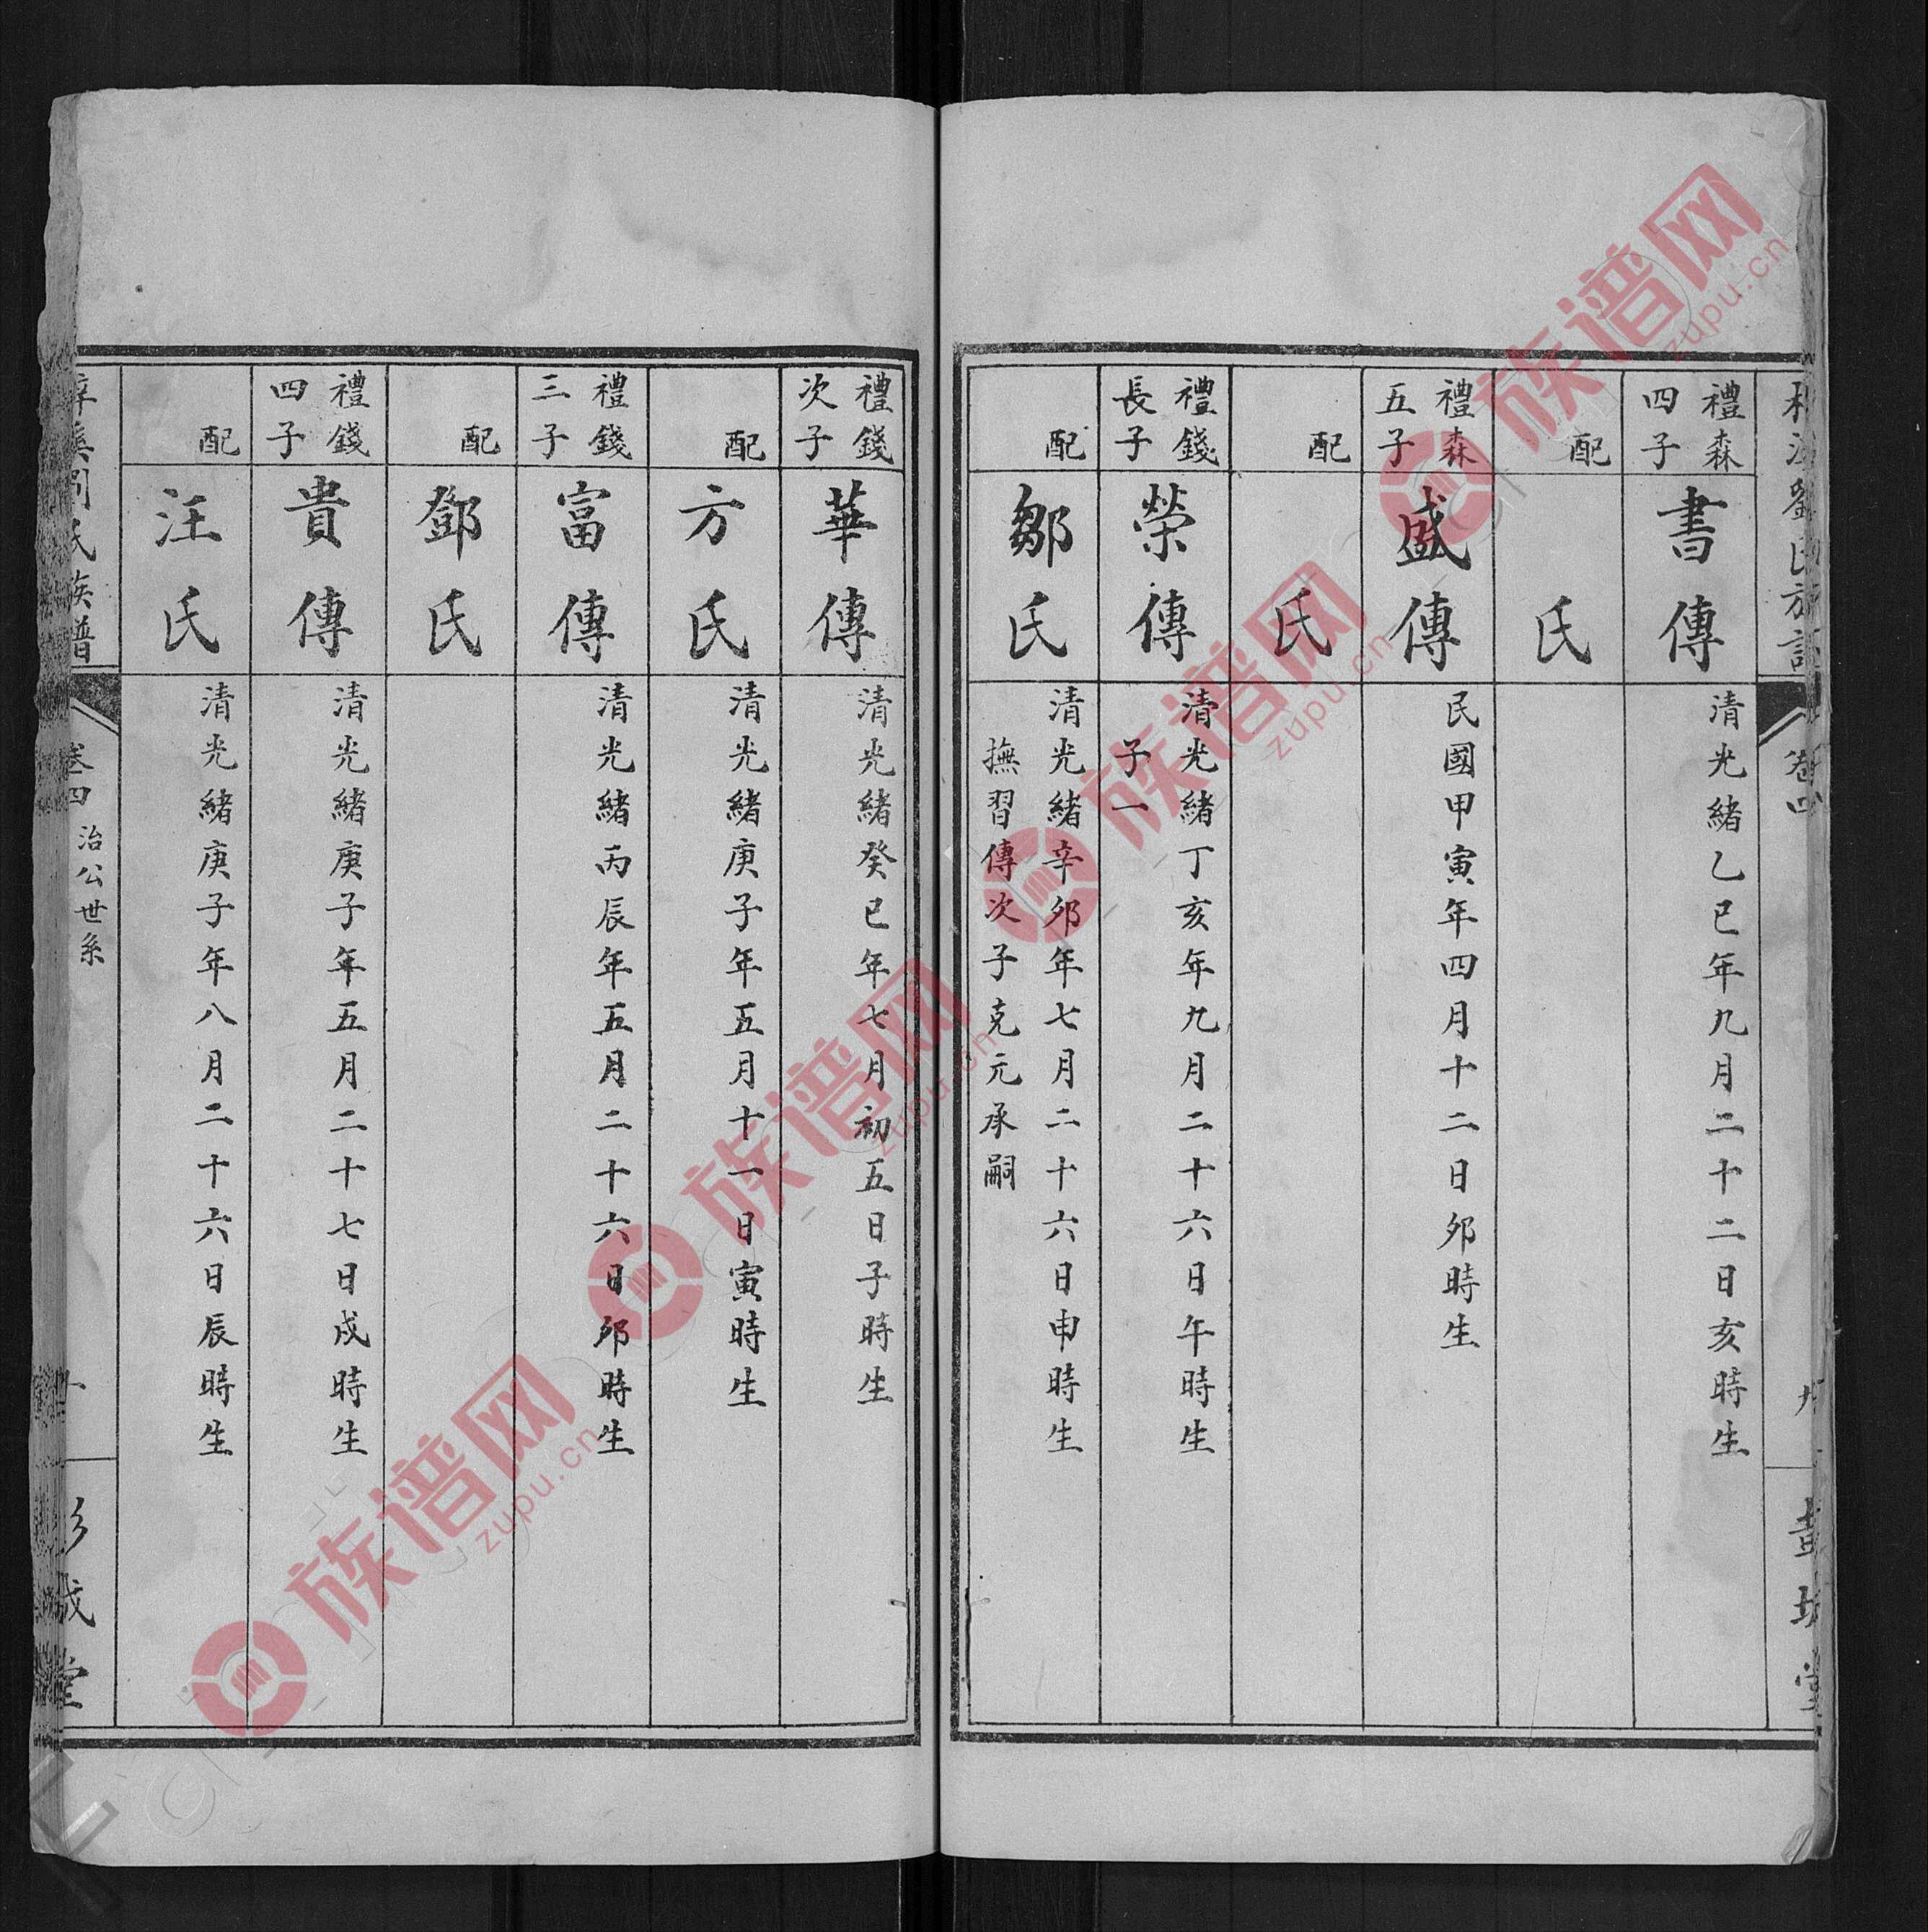 劉氏族譜
卷四
九
堂
禮森四子
書傳
清光緒乙巳年九月二十二日亥時生
配
氏
禮森五子
盛傳
民國甲寅年四月十二日夘時生
配
氏
禮錢長子
榮傳
清光緒丁亥年九月二十六日午時生
子一
配
鄒氏
清光緒辛夘年七月二十六日申時生
撫習傳次子克元承嗣
禮錢次子
華傳
清光緒癸巳年七月初五日子時生
配
方氏
清光緒庚子年五月十一日寅時生
禮錢三子
富傳
清光緒丙辰年五月二十六日夘時生
配
鄧氏
禮錢四子
貴傳
清光緒庚子年五月二十七日戌時生
配
汪氏
清光緒庚子年八月二十六日辰時生
氏族譜
卷四
治公世系
堂
族谱网
zupu.cn
族谱网
zupu.cn
族谱网
zupu.cn
族谱网
zupu.cn